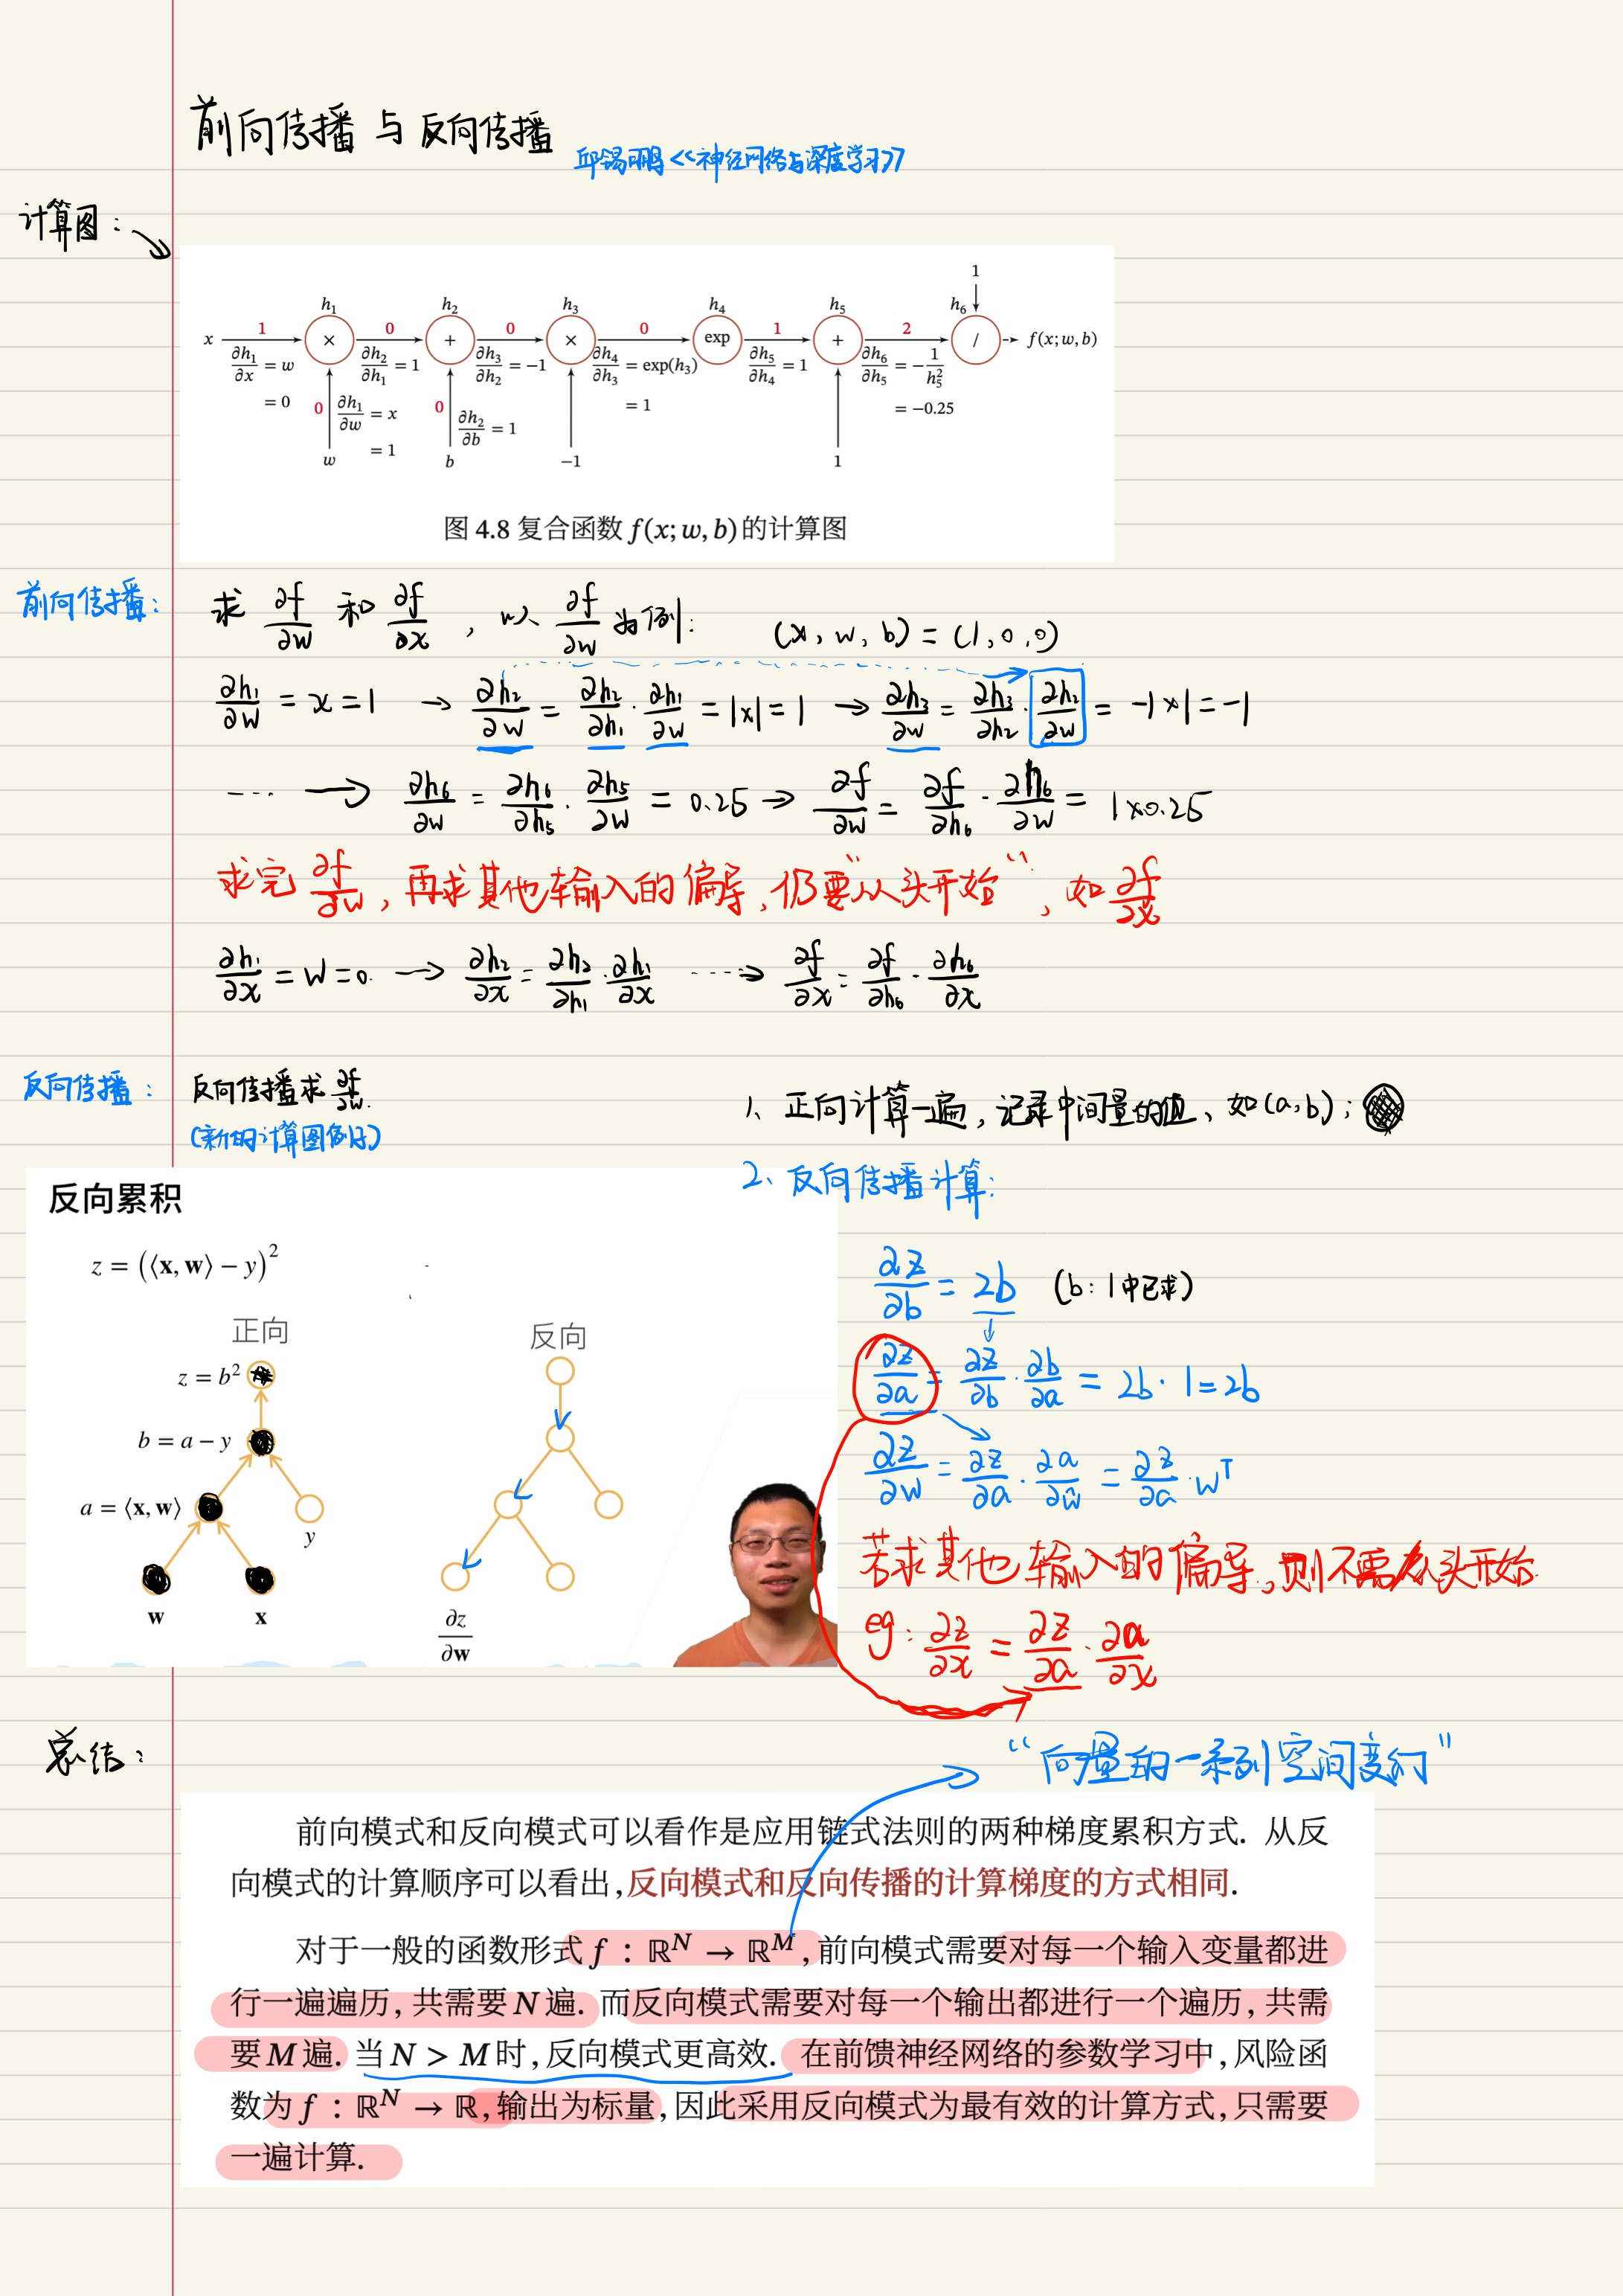 前向传播 与 反向传播
邱锡鹏<<神经网络与深度学习>>
计算图:
1
h₁ h₂ h₃ h₄ h₅ h₆
x 1 × 0 + 0 × 0 exp 1 + 2 / f(x; w, b)
∂h₁/∂x = w ∂h₂/∂h₁ = 1 ∂h₃/∂h₂ = −1 ∂h₄/∂h₃ = exp(h₃) ∂h₅/∂h₄ = 1 ∂h₆/∂h₅ = −1/h₅²
= 0 0 ∂h₁/∂w = x 0 ∂h₂/∂b = 1 = 1 = −0.25
= 1
w b −1 1
图 4.8 复合函数 f(x; w, b) 的计算图
前向传播:
求 ∂f/∂w 和 ∂f/∂x , 以 ∂f/∂w 为例: (x, w, b) = (1, 0, 0)
∂h₁/∂w = x = 1 → ∂h₂/∂w = ∂h₂/∂h₁ · ∂h₁/∂w = 1×1 = 1 → ∂h₃/∂w = ∂h₃/∂h₂ · ∂h₂/∂w = -1×1 = -1
---- → ∂h₆/∂w = ∂h₆/∂h₅ · ∂h₅/∂w = 0.25 → ∂f/∂w = ∂f/∂h₆ · ∂h₆/∂w = 1×0.25
求完 ∂f/∂w, 再求其他输入的偏导, 仍要"从头开始", 如 ∂f/∂x
∂h₁/∂x = w = 0. → ∂h₂/∂x = ∂h₂/∂h₁ · ∂h₁/∂x ----> ∂f/∂x = ∂f/∂h₆ · ∂h₆/∂x
反向传播:
反向传播求 ∂f/∂w.
(新的计算图例子)
1、正向计算一遍, 记录中间量的值、如(a, b);
2、反向传播计算:
反向累积
z = (⟨x, w⟩ − y)²
正向
反向
z = b²
b = a − y
a = ⟨x, w⟩
y
w x
∂z/∂w
∂z/∂b = 2b (b: 1中已求)
∂z/∂a = ∂z/∂b · ∂b/∂a = 2b · 1 = 2b
∂z/∂w = ∂z/∂a · ∂a/∂w = ∂z/∂a · wᵀ
若求其他输入的偏导, 则不需从头开始
eg: ∂z/∂x = ∂z/∂a · ∂a/∂x
总结:
"向量的一系列空间变幻"
前向模式和反向模式可以看作是应用链式法则的两种梯度累积方式. 从反
向模式的计算顺序可以看出, 反向模式和反向传播的计算梯度的方式相同.
对于一般的函数形式 f : ℝᴺ → ℝᴹ, 前向模式需要对每一个输入变量都进
行一遍遍历, 共需要 N 遍. 而反向模式需要对每一个输出都进行一个遍历, 共需
要 M 遍. 当 N > M 时, 反向模式更高效. 在前馈神经网络的参数学习中, 风险函
数为 f : ℝᴺ → ℝ, 输出为标量, 因此采用反向模式为最有效的计算方式, 只需要
一遍计算.